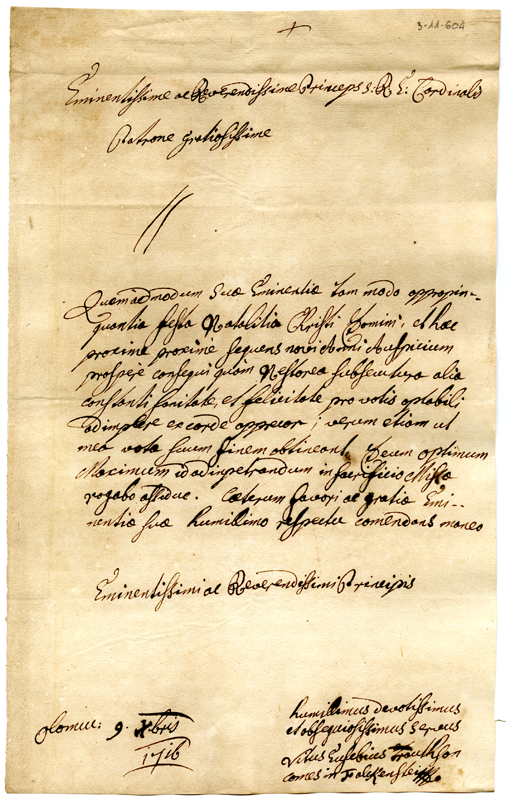 3-11-604
Eminentissime ac Reverendissime Princeps S: R: E: Cardinalis
Patrone gratiosissime
Quemadmodum suae Eminentiae tam modo appropin-
quantia festa Natalitia Christi Domini, et hac
proxime proxime sequens novi Anni Auspicium
prospere consequi quam Nestorea subsecutura alia
constanti sanitate, et felicitate pro votis optabili
adimplere ex corde apprecor; verum etiam ut
mea vota suum finem obtineant, Deum optimum
Maximum id ad impetrandum in sacrificio Missae
rogabo assidue. Caeterum favori ac gratiae Emi-
nentiae suae humilimo respectu comendans maneo
Eminentissimi ac Reverendissimi Principis
Olomiu: 9. Xbris
1716
humilimus devotissimus
et obsequiosissimus servus
Vitus Eusebius Trouthson
comes in Falckenstein